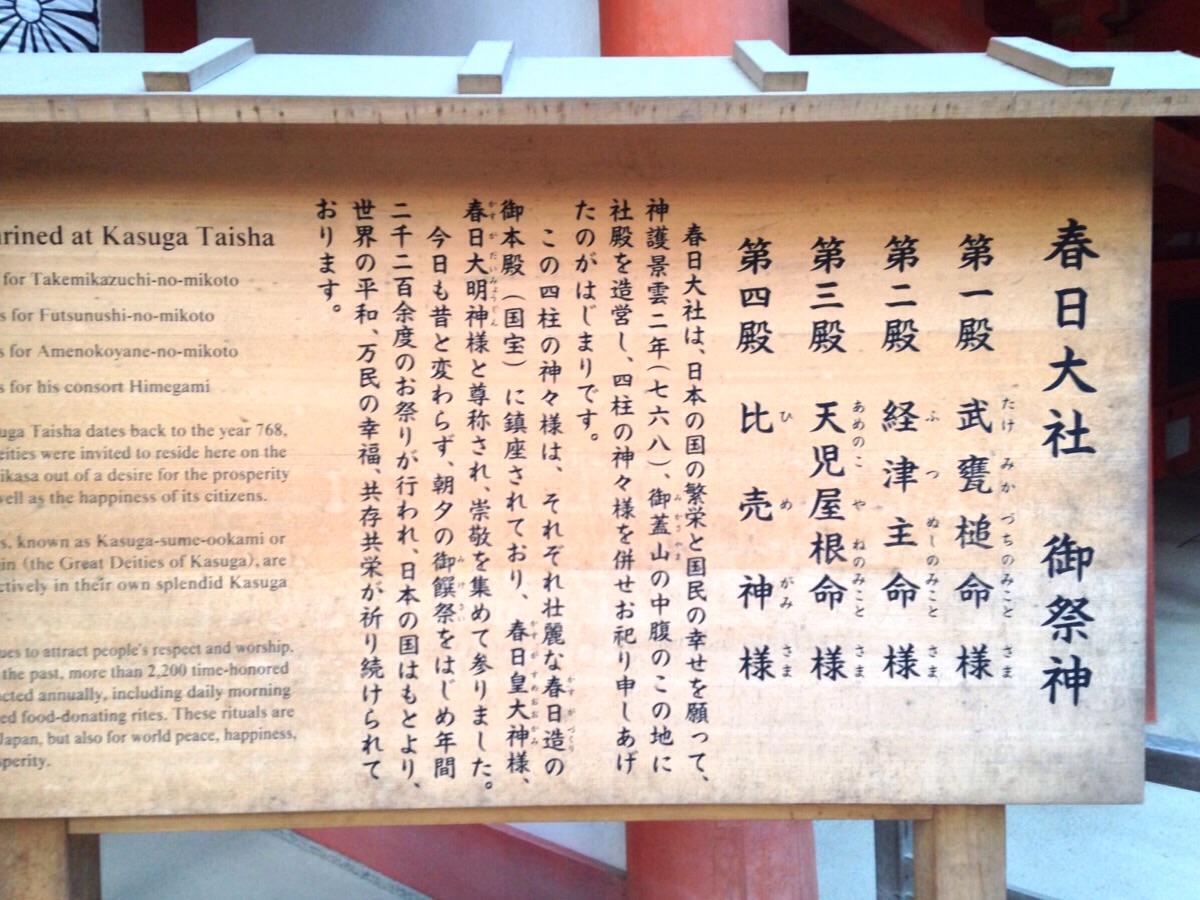 春日大社 御祭神
第一殿 武甕槌命様
たけ みか づちのみこと さま
第二殿 経津主命様
ふ つ ぬしのみこと さま
第三殿 天児屋根命様
あめのこ や ねのみこと さま
第四殿 比売神様
ひ め がみ さま
春日大社は、日本の国の繁栄と国民の幸せを願って、
神護景雲二年(七六八)、御蓋山の中腹のこの地に
みかさやま
社殿を造営し、四柱の神々様を併せお祀り申しあげ
たのがはじまりです。
この四柱の神々様は、それぞれ壮麗な春日造の
かすがづくり
御本殿(国宝)に鎮座されており、春日皇大神様、
かすがすめおおかみ
春日大明神様と尊称され、崇敬を集めて参りました。
かすがだいみょうじん
今日も昔と変わらず、朝夕の御饌祭をはじめ年間
みけさい
二千二百余度のお祭りが行われ、日本の国はもとより、
世界の平和、万民の幸福、共存共栄が祈り続けられて
おります。
rined at Kasuga Taisha
for Takemikazuchi-no-mikoto
s for Futsunushi-no-mikoto
s for Amenokoyane-no-mikoto
s for his consort Himegami
uga Taisha dates back to the year 768,
eities were invited to reside here on the
ikasa out of a desire for the prosperity
well as the happiness of its citizens.
s, known as Kasuga-sume-ookami or
in (the Great Deities of Kasuga), are
ctively in their own splendid Kasuga
ues to attract people's respect and worship.
the past, more than 2,200 time-honored
cted annually, including daily morning
ed food-donating rites. These rituals are
Japan, but also for world peace, happiness,
sperity.